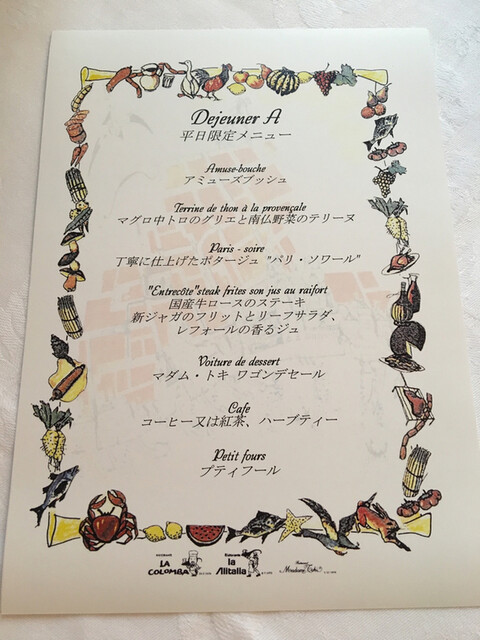 Dejeuner A
平日限定メニュー
Amuse-bouche
アミューズブッシュ
Terrine de thon à la provençale
マグロ中トロのグリエと南仏野菜のテリーヌ
Paris - soire
丁寧に仕上げたポタージュ "パリ・ソワール"
"Entrecôte"steak frites son jus au raifort
国産牛ロースのステーキ
新ジャガのフリットとリーフサラダ、
レフォールの香るジュ
Voiture de dessert
マダム・トキ ワゴンデセール
Cafe
コーヒー又は紅茶、ハーブティー
Petit fours
プティフール
LA COLOMBA
Ristorante
la Alitalia
Madame Toki